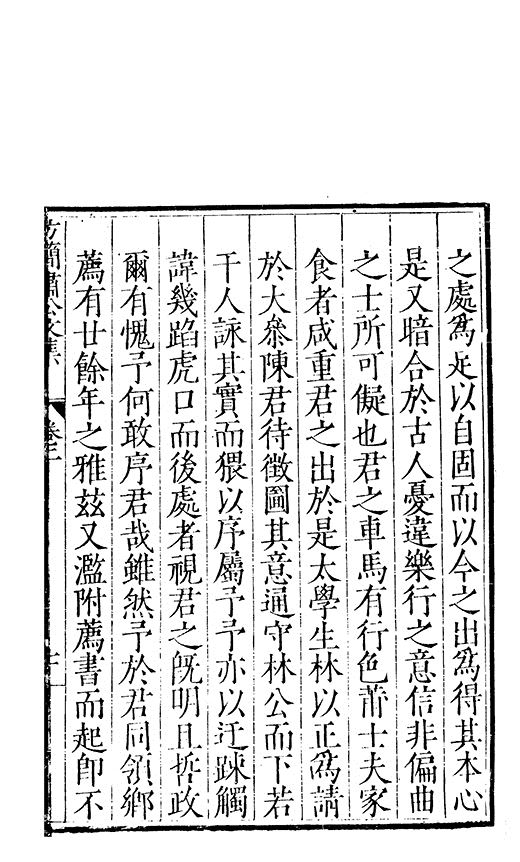 之處爲足以自固而以今之出爲得其本心
是又暗合於古人憂違樂行之意信非偏曲
之士所可儗也君之車馬有行色莆士夫家
食者咸重君之出於是太學生林以正爲請
於大叅陳君待徵圖其意通守林公而下若
干人詠其實而猥以序屬予予亦以迂踈觸
諱幾蹈虎口而後處者視君之旣明且哲政
爾有愧予何敢序君哉雖然予於君同領鄉
薦有廿餘年之雅茲又濫附薦書而起卽不
方簡肅公文集